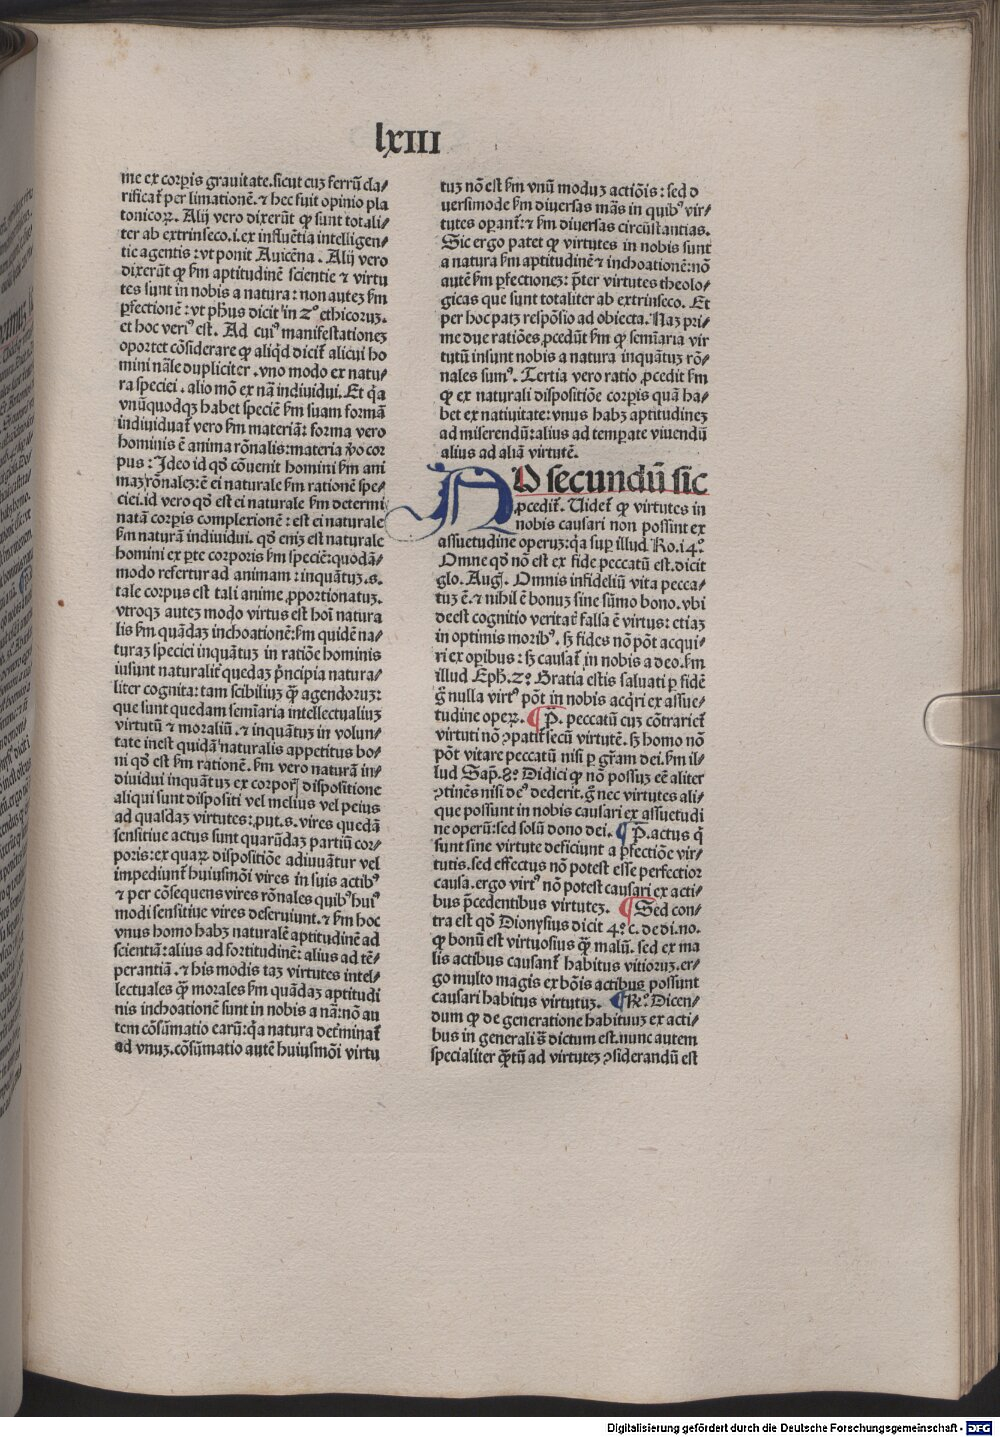 lxIII
me ex corꝑis grauitate.sicut cuꝫ ferrū cla/
rificat̄ per limationē. ⁊ hec fuit opinio pla
tonicoꝝ. Alij vero dixerūt ꝙ sunt totali/
ter ab extrinseco.i.ex influētia intelligen/
tie agentis : vt ponit Auicēna. Alij vero
dixerūt ꝙ ẜm aptitudinē scientie ⁊ virtu
tes sunt in nobis a natura : non auteꝫ ẜm
ꝑfectionē : vt ph̄us dicit in 2° ethicoruꝫ.
et hoc veri⁹ est. Ad cui⁹ manifestationeꝫ
oportet cōsiderare ꝙ aliq̇d dicit̄ alicui ho
mini nāle dupliciter. vno modo ex natu/
ra speciei. alio mō ex nā indiuidui. Et q̇a
vnūquodqꝫ habet speciē ẜm suam formā
indiuiduat̄ vero ẜm materiā: forma vero
hominis ē anima rōnalis: materia v̄o cor
pus : Ideo id qd̄ cōuenit homini ẜm ani
maꝫ rōnaleꝫ: ē ei naturale ẜm rationē spe/
ciei. id vero qd̄ est ei naturale ẜm determi
natā corꝑis complexionē : est ei naturale
ẜm naturā indiuidui. qd̄ eniꝫ est naturale
homini ex ꝑte corporis ẜm speciē: quodā/
modo refertur ad animam : inquātuꝫ.s.
tale corpus est tali anime ꝓportionatuꝫ.
vtroqꝫ auteꝫ modo virtus est hoī natura
lis ẜm quādaꝫ inchoationē: ẜm quidē na/
turaꝫ speciei inquātuꝫ in ratiōe hominis
iusunt naturalit̄ quedaꝫ pͥncipia natura/
liter cognita: tam scibiliuꝫ q̄ꝫ agendoruꝫ:
que sunt quedam semīaria intellectualiuꝫ
virtutū ⁊ moraliū. ⁊ inquātuꝫ in volun/
tate inest quidā naturalis appetitus bo/
ni qd̄ est ẜm rationē. ẜm vero naturā in/
diuidui inquātuꝫ ex corporꝭ dispositione
aliqui sunt dispositi vel melius vel peius
ad quasdaꝫ virtutes : ꝓut.s. vires quedā
sensitiue actus sunt quarūdaꝫ partiū cor/
poris: ex quaꝝ dispositiōe adiuuātur vel
impediunt̄ huiusmōi vires in suis actib⁹
⁊ per cōsequens vires rōnales quib⁹ hui⁹
modi sensitiue vires deseruiunt. ⁊ ẜm hoc
vnus homo habꝫ naturalē aptitudinē ad
scientiā: alius ad fortitudinē: alius ad tē/
perantiā. ⁊ his modis taꝫ virtutes intel/
lectuales q̄ꝫ morales ẜm quādaꝫ aptitudi
nis inchoationē sunt in nobis a nā: nō au
tem cōsūmatio earū: q̇a natura det̄minat̄
ad vnuꝫ. cōsūmatio autē huiusmōi virtu
tuꝫ nō est ẜm vnū moduꝫ actiōis : sed d
uersimode ẜm diuersas mās in quib⁹ vir/
tutes operant̄: ⁊ ẜm diuersas circūstantias.
Sic ergo patet ꝙ virtutes in nobis sunt
a natura ẜm aptitudinē ⁊ inchoationē: nō
autē ẜm ꝑfectioneꝫ: p̄ter virtutes theolo/
gicas que sunt totaliter ab extrinseco. Et
per hoc patꝫ respōsio ad obiecta. Naꝫ pri/
me due ratiōes ꝓcedūt ẜm ꝙ semīaria vir
tutū insunt nobis a natura inquātuꝫ rō/
nales sum⁹. Tertia vero ratio ꝓcedit ẜm
ꝙ ex naturali dispositiōe corꝑis quā ha/
bet ex natiuitate: vnus habꝫ aptitudineꝫ
ad miserendū: alius ad temꝑate viuendū
alius ad aliā virtutē.
AD secundū sic
ꝓcedit̄. Uidet̄ ꝙ virtutes in
nobis causari non possint ex
assuetudine operuꝫ: q̇a suꝑ illud Ro.14°
Omne qd̄ nō est ex fide peccatū est. dicit
glo. Auḡ. Omnis infideliū vita pecca/
tuꝫ ē. ⁊ nihil ē bonuꝫ sine sūmo bono. vbi
deest cognitio veritat̄ falsa ē virtus: etiaꝫ
in optimis morib⁹. sꝫ fides nō pōt acqui/
ri ex oꝑibus : sꝫ causat̄ in nobis a deo. ẜm
illud Eph̄.2° Gratia estis saluati ꝑ fidē
g̊ nulla virt⁹ pōt in nobis acq̇ri ex assue/
tudine opeꝝ. ¶ P̄. peccatū cuꝫ cōtrariet̄
virtuti nō ꝯpatit̄ secū virtutē. sꝫ homo nō
pōt vitare peccatū nisi ꝑ gr̄am dei. ẜm il/
lud Sap̄.8° Didici ꝙ nō possuꝫ eē aliter
ꝯtinēs nisi de⁹ dederit. g̊ nec virtutes ali/
que possunt in nobis causari ex assuetudi
ne operū: sed solū dono dei. ¶ P̄. actus q̇
sunt sine virtute deficiunt a ꝑfectiōe vir/
tutis. sed effectus nō potest esse perfectior
causa. ergo virt⁹ nō potest causari ex acti/
bus p̄cedentibus virtuteꝫ. ¶ Sed con/
tra est qd̄ Dionysius dicit 4°.c. de di.no.
ꝙ bonū est virtuosius q̄ꝫ malū. sed ex ma
lis actibus causant̄ habitus vitioruꝫ. er/
go multo magis ex bōis actibus possunt
causari habitus virtutuꝫ. ¶ Rͦ. Dicen/
dum ꝙ de generatione habituuꝫ ex acti/
bus in generali s̄ dictum est. nunc autem
specialiter q̄ꝫtū ad virtuteꝫ ꝯsiderandū est
Digitalisierung gefördert durch die Deutsche Forschungsgemeinschaft - DFG